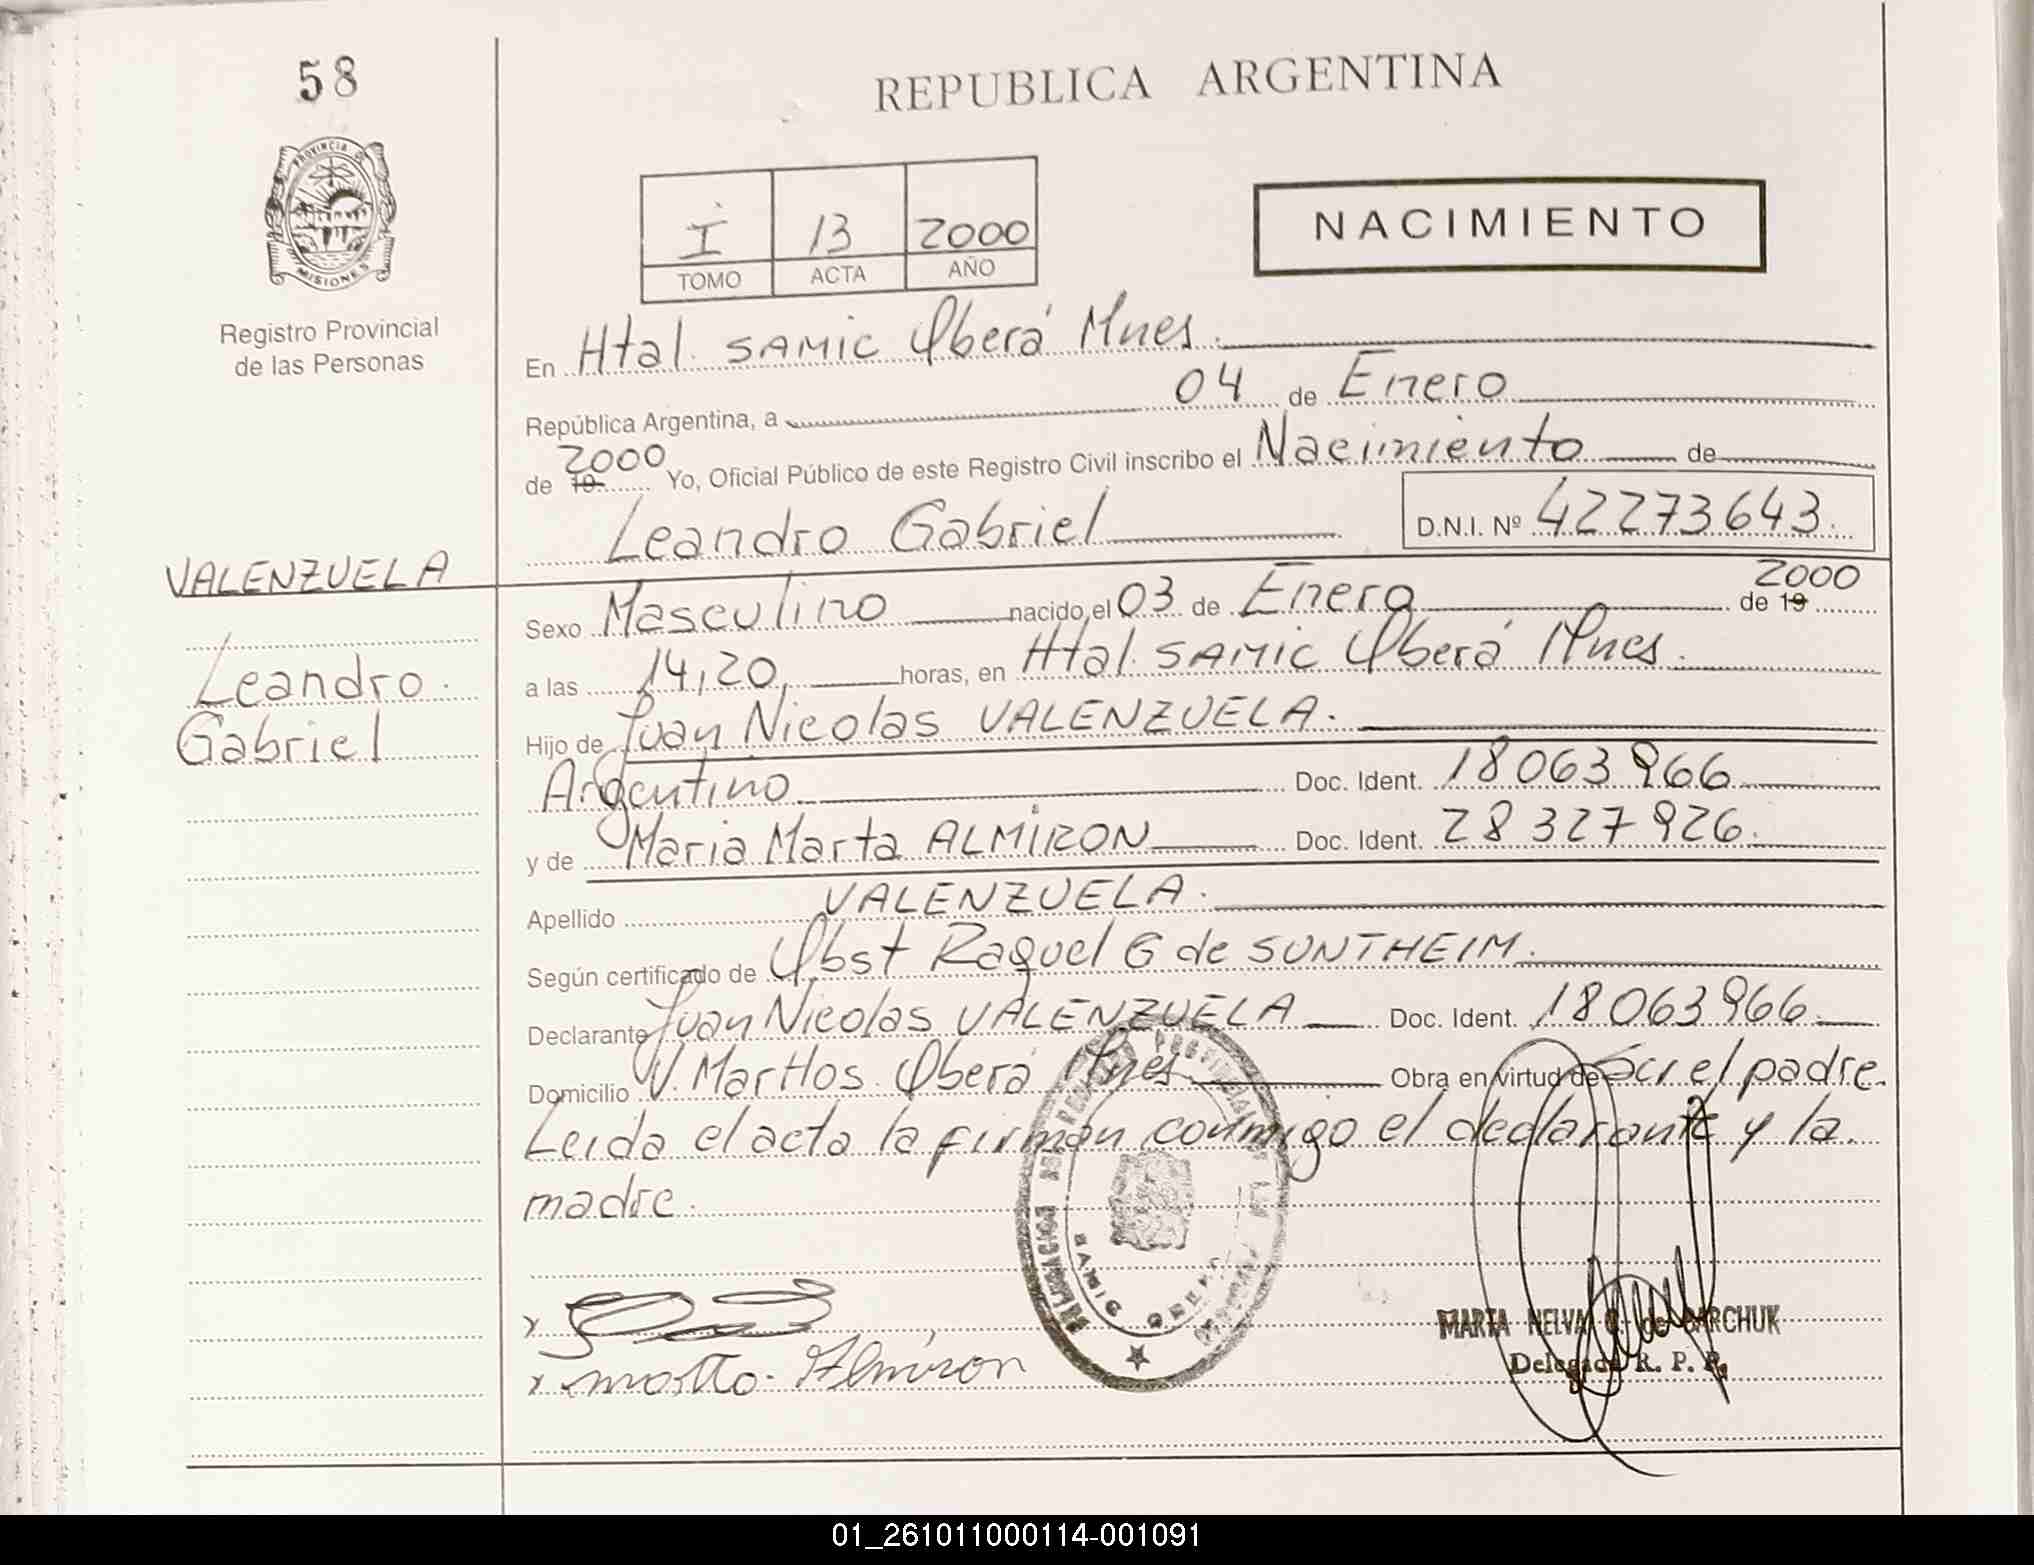 58
REPUBLICA ARGENTINA
PROVINCIA DE
MISIONES
Registro Provincial
de las Personas
I 13 2000
TOMO ACTA AÑO
NACIMIENTO
En Htal. SAMIC Oberá Mnes.
República Argentina, a 04 de Enero
de 19 2000 Yo, Oficial Público de este Registro Civil inscribo el Nacimiento de
Leandro Gabriel D.N.I. Nº 42273643.
VALENZUELA
Leandro
Gabriel
Sexo Masculino nacido el 03 de Enero de 19 2000
a las 14,20 horas, en Htal. SAMIC Oberá Mnes.
Hijo de Juan Nicolas VALENZUELA.
Argentino Doc. Ident. 18063966
y de Maria Marta ALMIRON Doc. Ident. 28327926.
Apellido VALENZUELA.
Según certificado de Obst Raquel G de SUNTHEIM.
Declarante Juan Nicolas VALENZUELA Doc. Ident. 18063966
Domicilio V. Martos. Oberá Mnes Obra en virtud de Ser el padre.
Leida el acta la firman conmigo el declarante y la
madre.
x
x marta. Almiron
MARTA NELVA de
Delegada R. P. P.
01_261011000114-001091